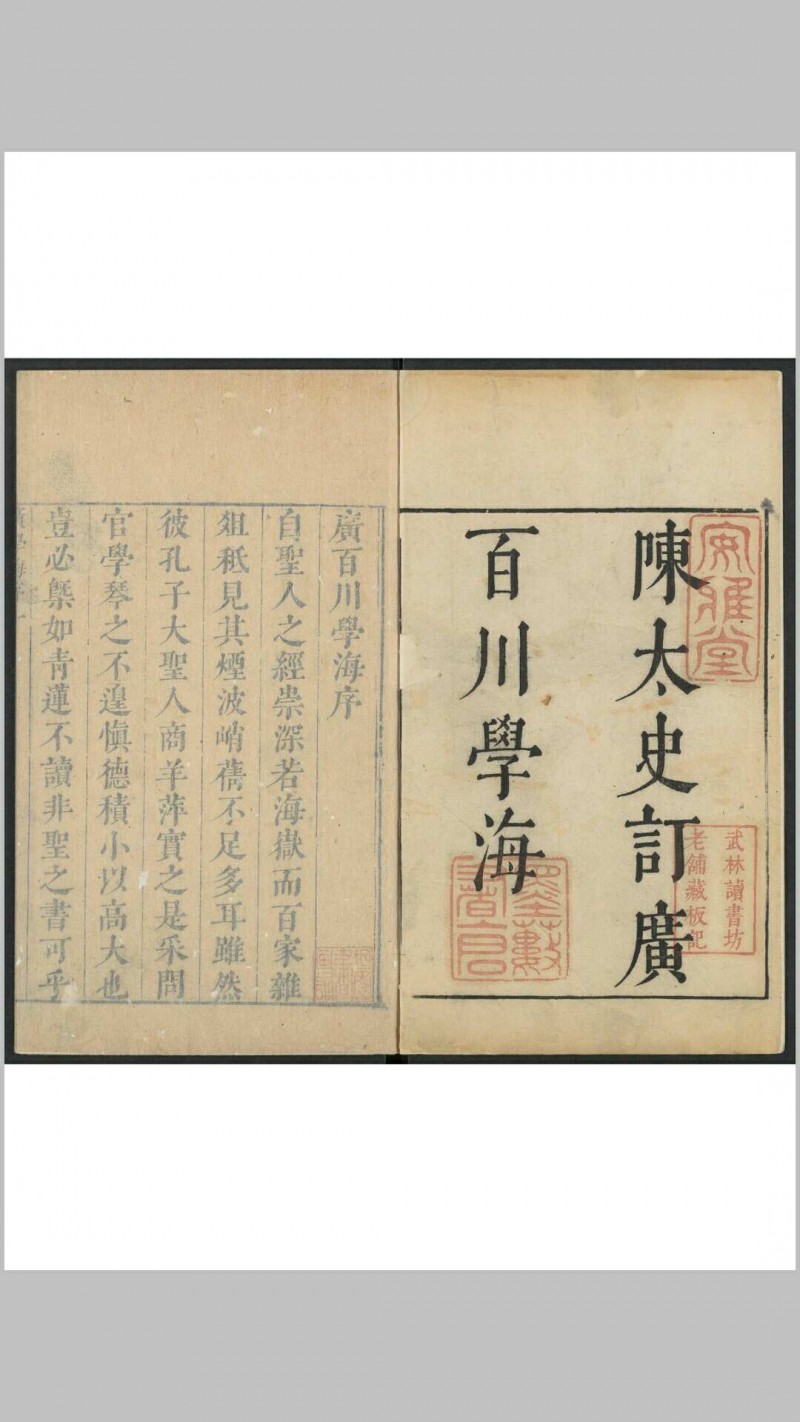 陳太史訂廣
百川學海
安雅堂
武林讀書坊
老舖藏板記
廣百川學海序
自聖人之經崇深若海嶽而百家雜
俎秖見其煙波峭蒨不足多耳雖然
彼孔子大聖人商羊萍實之是采問
官學琴之不遑慎德積小以高大也
豈必槩如青蓮不讀非聖之書可乎